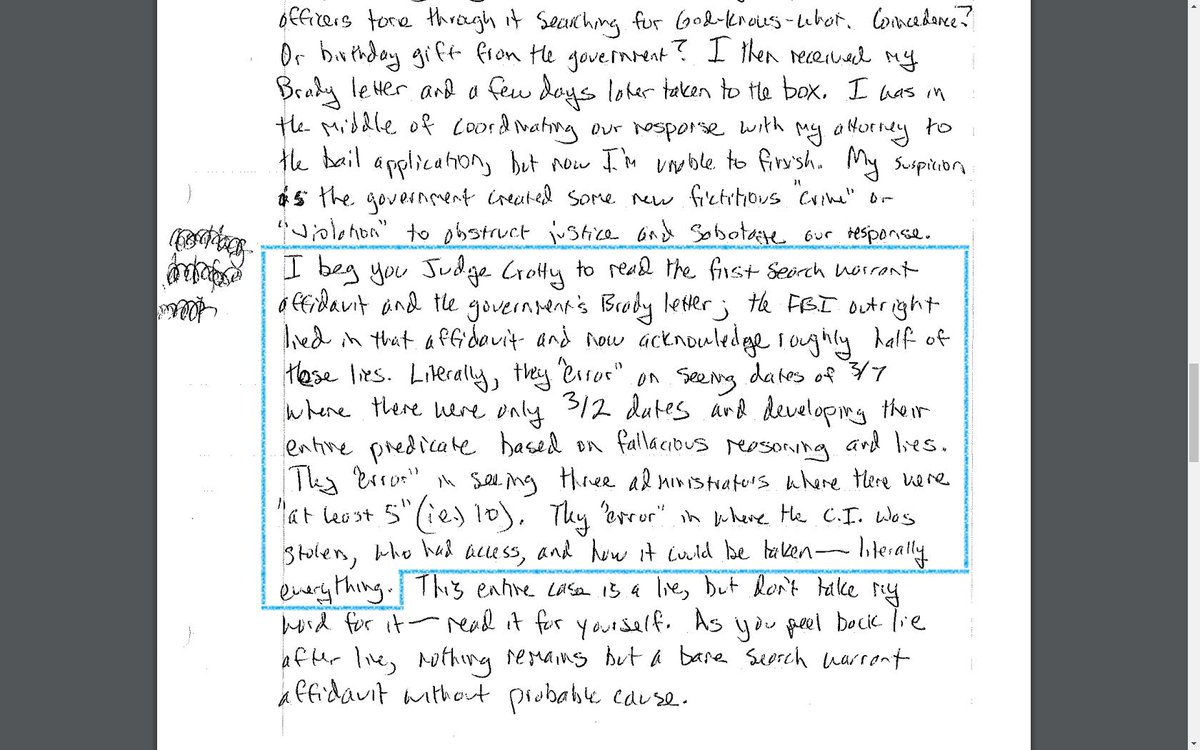 officers tore through it searching for God-knows-what. Coincedence?
Or birthday gift from the government? I then received my
Brady letter and a few days later taken to the box. I was in
the middle of coordinating our response with my attorney to
the bail application, but now I'm unable to finish. My suspicion
is the government created some new fictitious "crime" or
"violation" to obstruct justice and sabotage our response.
I beg you Judge Crotty to read the first search warrant
affidavit and the government's Brady letter; the FBI outright
lied in that affidavit and now acknowledge roughly half of
those lies. Literally, they "error" on seeing dates of 3/7
where there were only 3/2 dates and developing their
entire predicate based on fallacious reasoning and lies.
They "error" in seeing three administrators where there were
"at least 5" (i.e.) 10). They "error" in where the C.I. was
stolen, who had access, and how it could be taken — literally
everything. This entire case is a lie, but don't take my
word for it — read it for yourself. As you peel back lie
after lie, nothing remains but a bare search warrant
affidavit without probable cause.